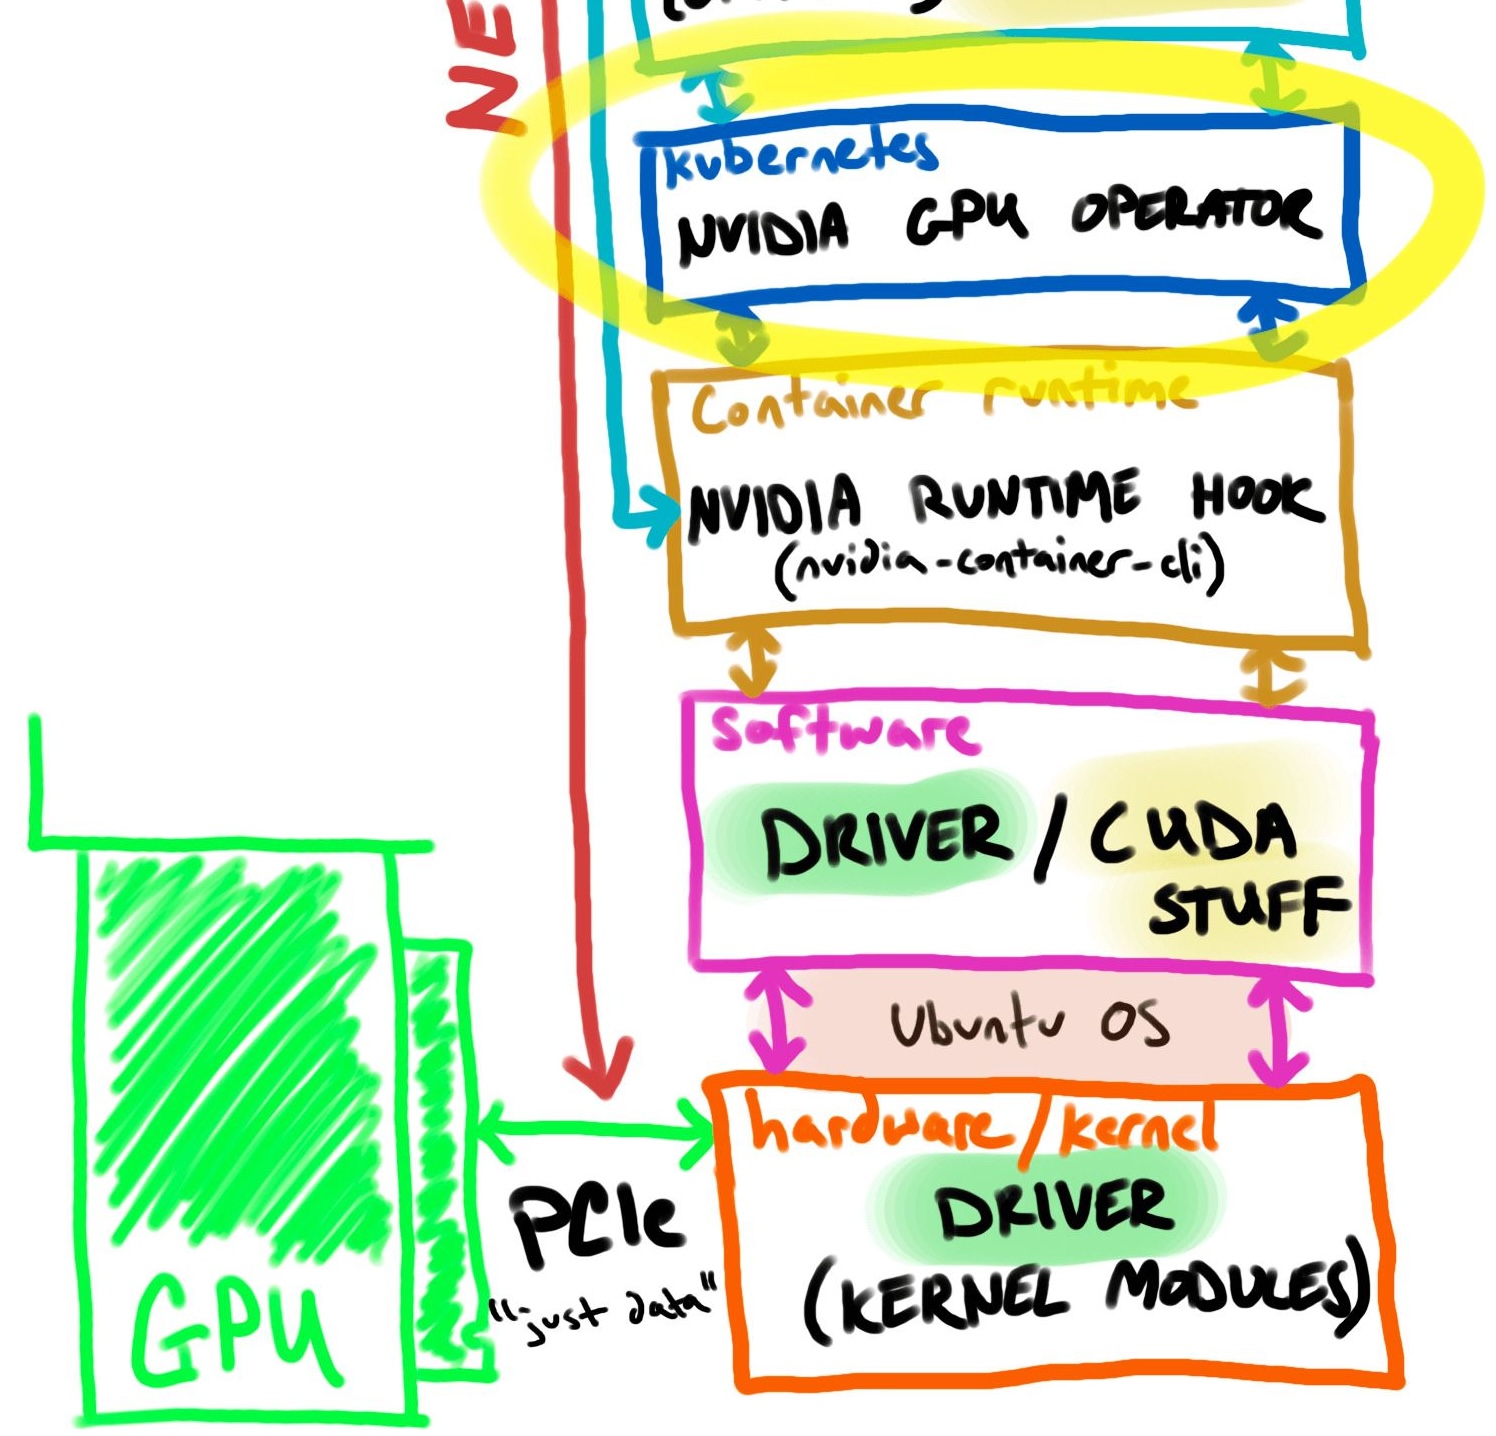 NE
kubernetes
NVIDIA GPU OPERATOR
Container runtime
NVIDIA RUNTIME HOOK
(nvidia-container-cli)
Software
DRIVER / CUDA
STUFF
Ubuntu OS
hardware/kernel
DRIVER
(KERNEL MODULES)
PCIe
"just data"
GPU